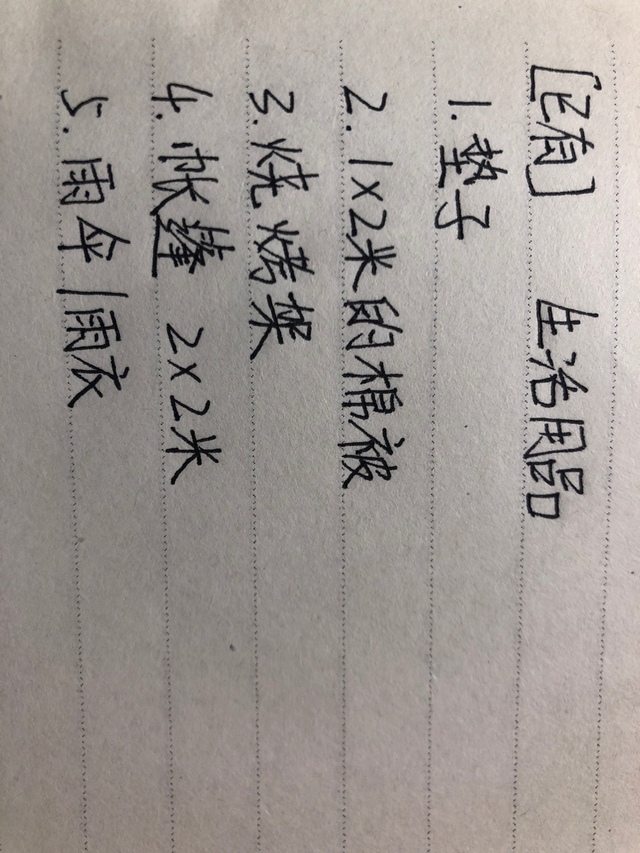 [已有] 生活用品
1. 垫子
2. 1×2米的棉被
3. 烧烤架
4. 帐篷 2×2米
5. 雨伞/雨衣